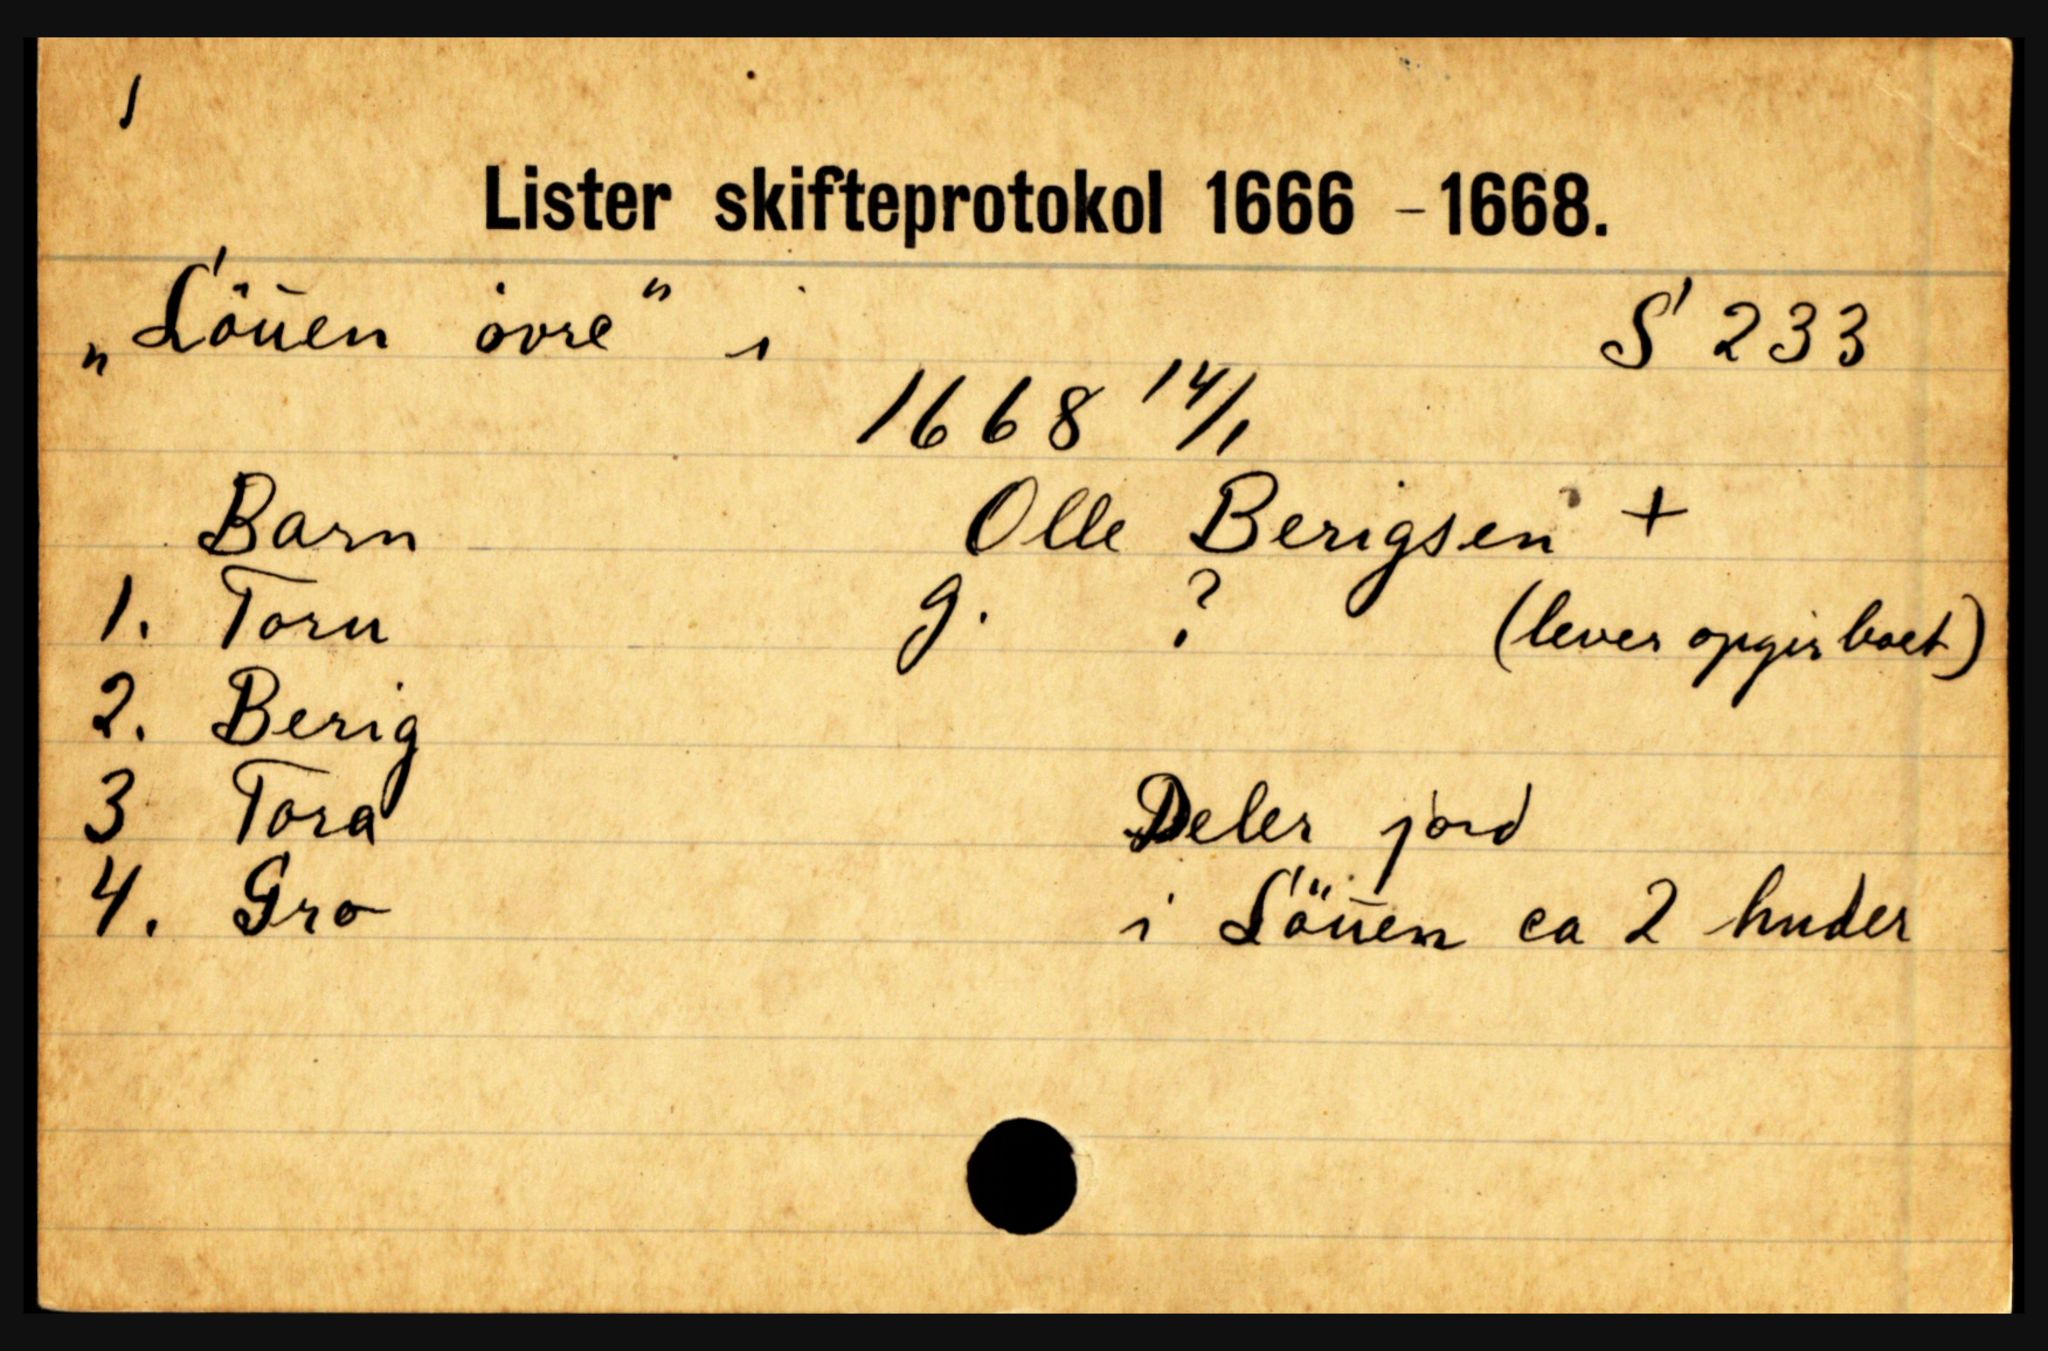 1
Lister skifteprotokol 1666 - 1668.
„Löuen övre" i S 233
1668 14/1
Barn Olle Berigsen +
1. Toru g. ? (lever opgir boet)
2. Berig
3 Tora Deler jord
4. Gro i Löuen ca 2 huder